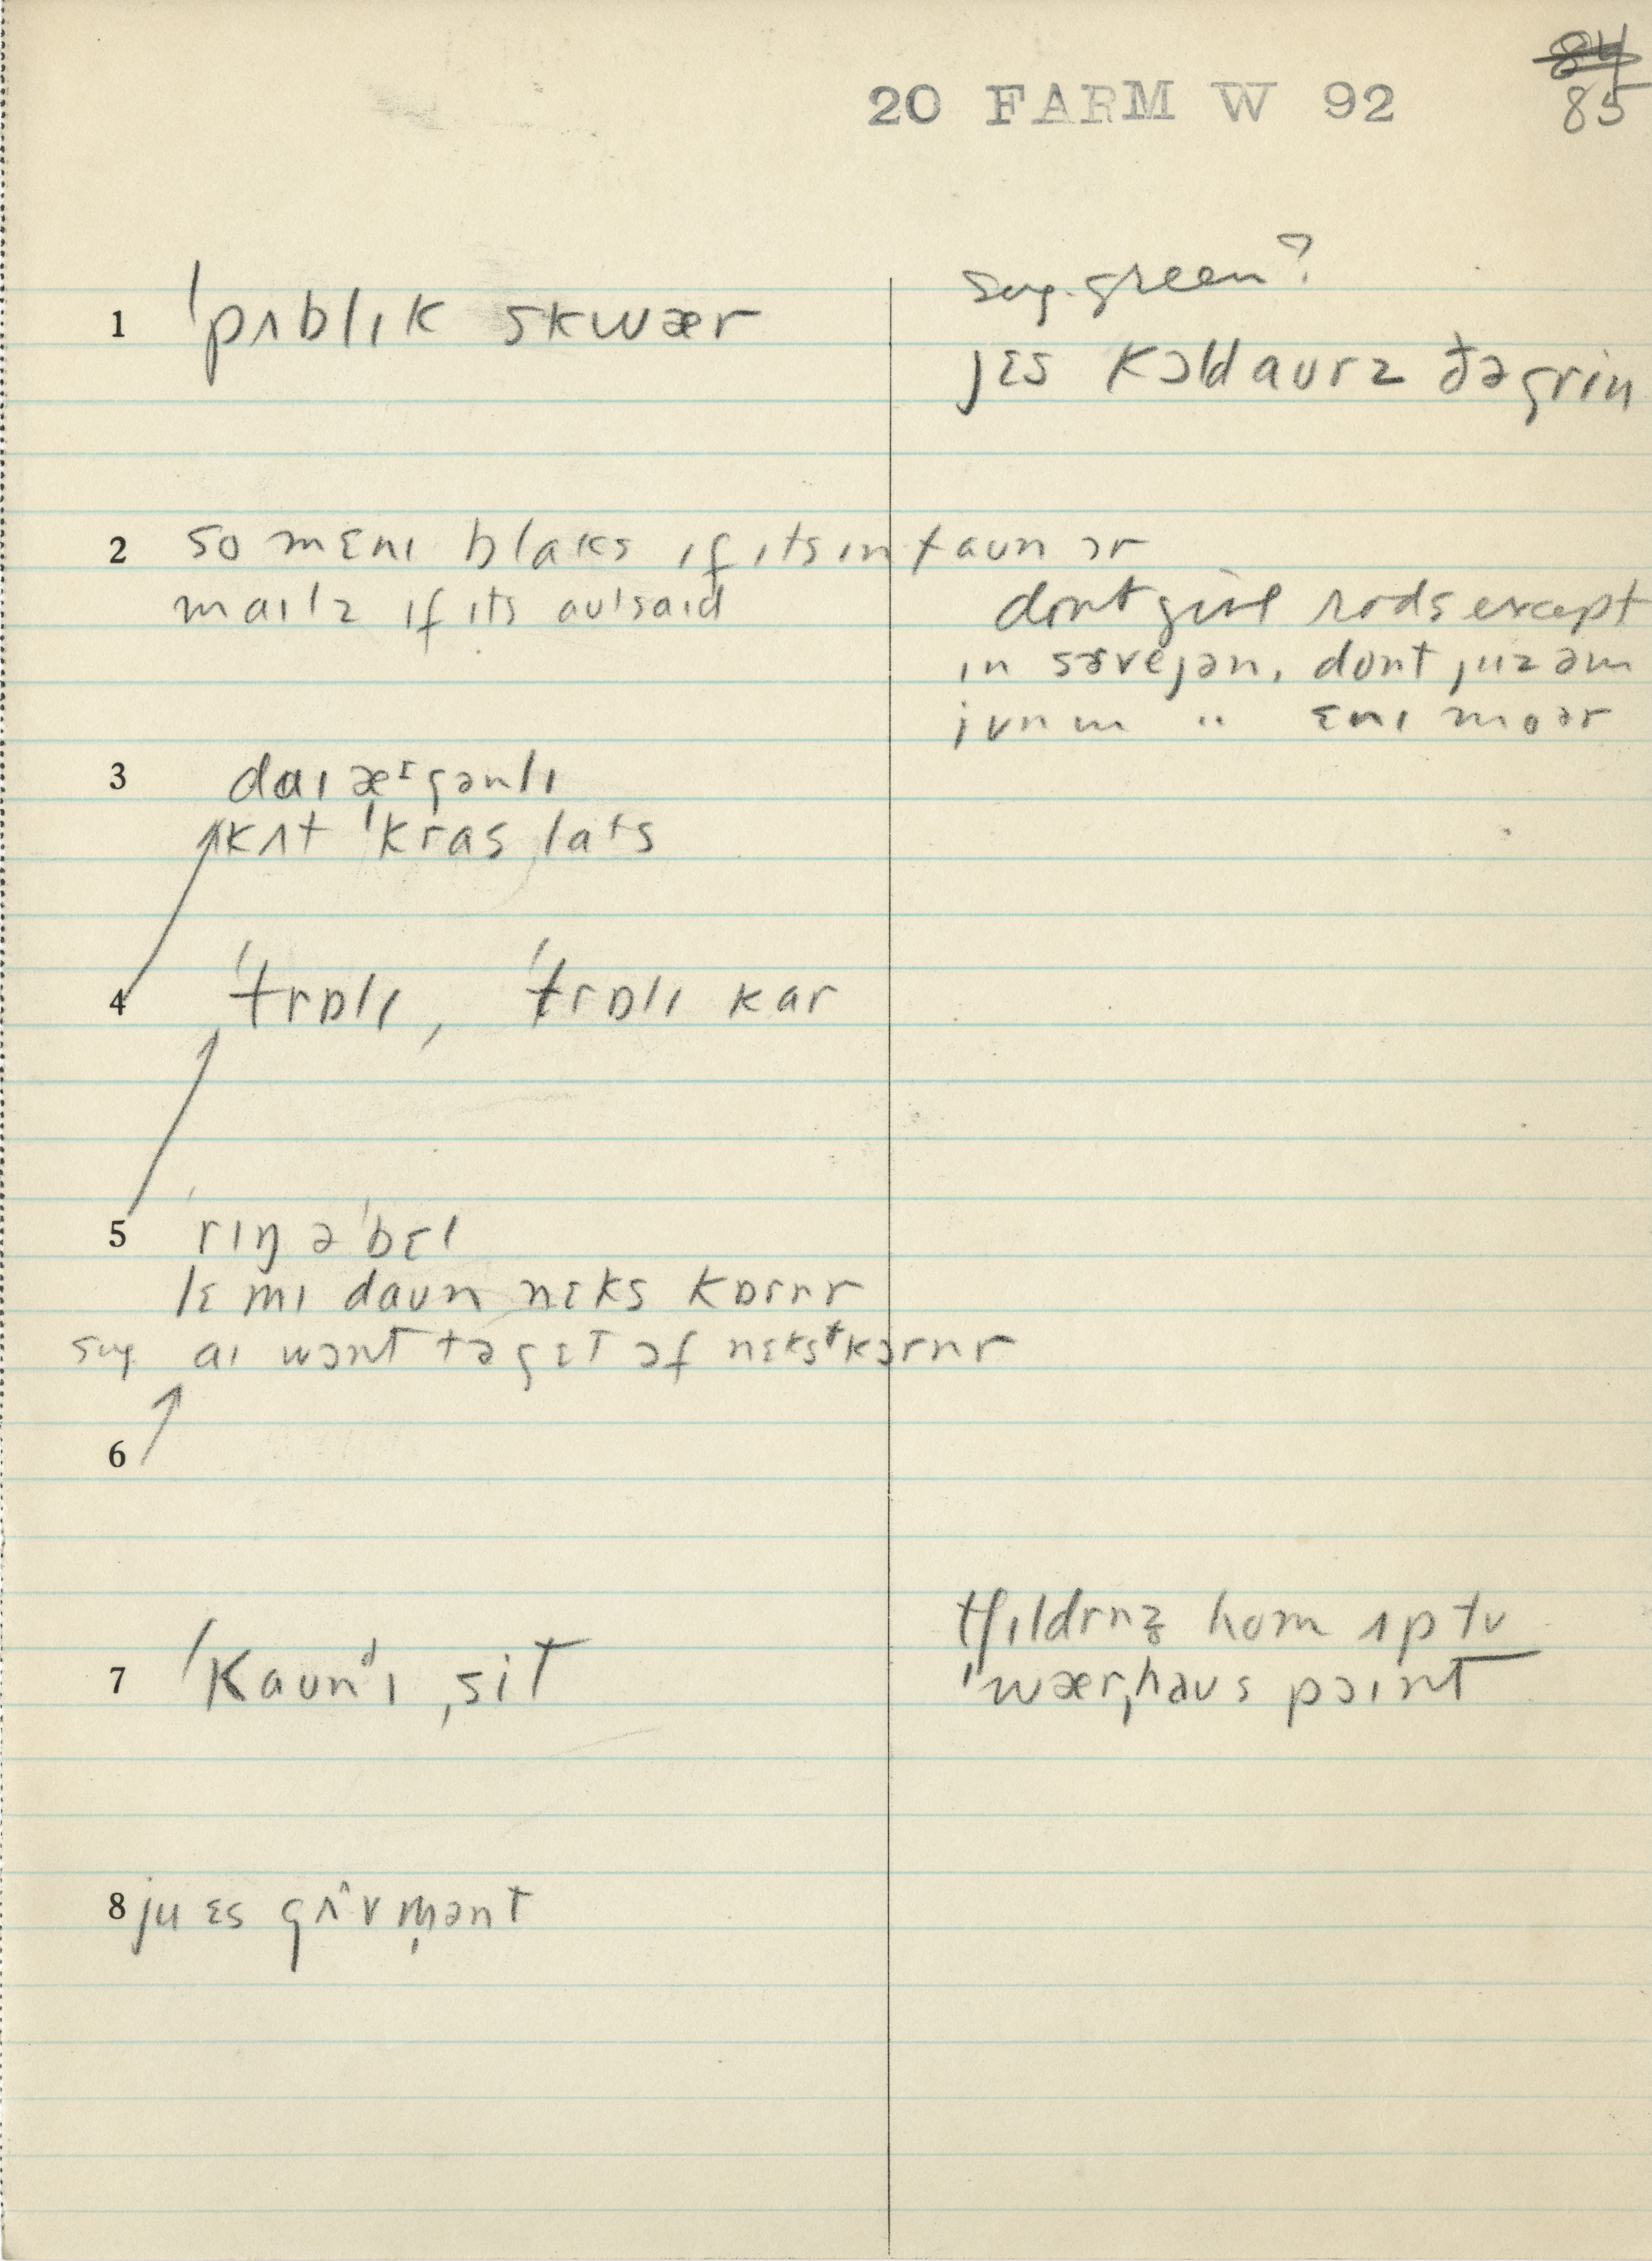 84
20 FARM W 92
85
sug. green?
1 ˈpʌblɪk skwær
jɛs kɔld aurz ðə grin
2 so mɛnɪ blaks ɪf ɪts ɪn taun ɔr
maɪlz ɪf ɪts autsaɪd
dont give rods except
ɪn sɝvejən, dont juz əm
ɪn m " ɛnɪ moər
3 daɪægənlɪ
kʌt ˈkras lats
4 ˈtrɒlɪ, ˈtrɒlɪ kar
5 ˈrɪŋ ə ˈbɛl
lɛ mɪ daun nɛks kɒrnr
sug aɪ wɔnt tə gɛt ɔf nɛkst kɔrnr
6
tʃɪldrnz hom ʌp tu
7 ˈkaunᵈɪ ˌsit
ˈwærˌhaus pɔɪnt
8 ju ɛs gʌvm̩ənt